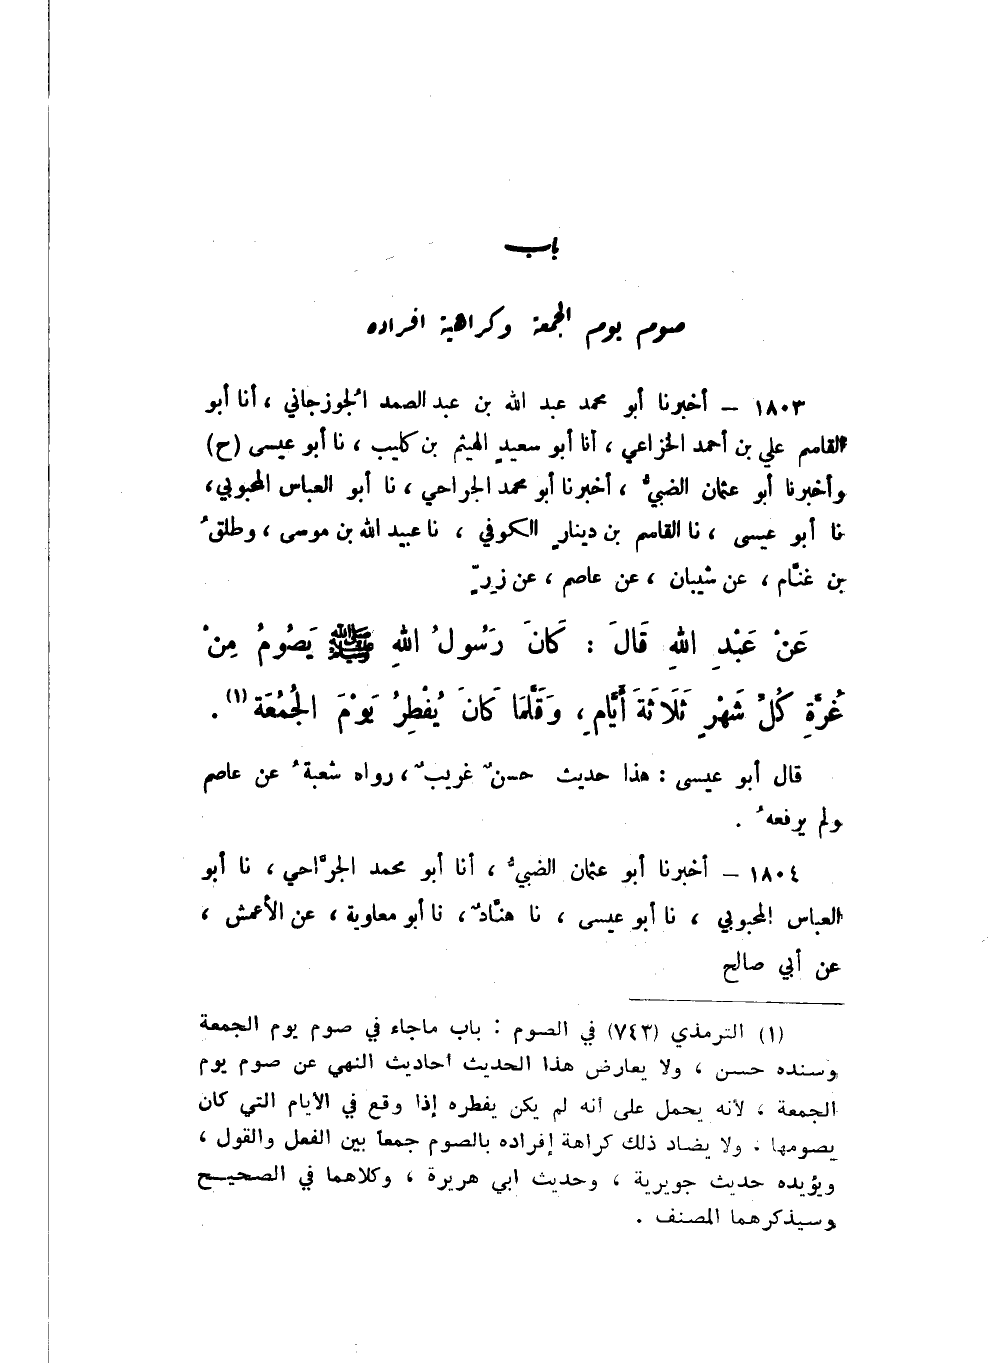 باب
صوم يوم الجمعة وكراهية افراده
١٨٠٣ – أخبرنا أبو محمد عبد الله بن عبد الصمد الجوزجاني ، أنا أبو
القاسم علي بن أحمد الخزاعي ، أنا أبو سعيدٍ الهيثم بن كليب ، نا أبو عيسى (ح)
وأخبرنا أبو عثمان الضبيُّ ، أخبرنا أبو محمد الجراحي ، نا أبو العباس المحبوبي ،
نا أبو عيسى ، نا القاسم بن دينارٍ الكوفي ، نا عبيد الله بن موسى ، وطلقُ
بن غنَّام ، عن شيبان ، عن عاصم ، عن زِرٍّ
عَنْ عَبْدِ اللهِ قَالَ : كَانَ رَسُولُ اللهِ ﷺ يَصُومُ مِنْ
غُرَّةِ كُلِّ شَهْرٍ ثَلَاثَةَ أَيَّامٍ ، وَقَلَّمَا كَانَ يُفْطِرُ يَوْمَ الْجُمُعَة (١) .
قال أبو عيسى : هذا حديث حسنٌ غريبٌ ، رواه شعبةُ عن عاصم
ولم يرفعهُ .
١٨٠٤ – أخبرنا أبو عثمان الضبيُّ ، أنا أبو محمد الجرَّاحي ، نا أبو
العباس المحبوبي ، نا أبو عيسى ، نا هنَّادٌ ، نا أبو معاوية ، عن الأعمش ،
عن أبي صالح
(١) الترمذي (٧٤٣) في الصوم : باب ماجاء في صوم يوم الجمعة
وسنده حسن ، ولا يعارض هذا الحديث أحاديث النهي عن صوم يوم
الجمعة ، لأنه يحمل على أنه لم يكن يفطره إذا وقع في الأيام التي كان
يصومها . ولا يضاد ذلك كراهة إفراده بالصوم جمعاً بين الفعل والقول ،
ويؤيده حديث جويرية ، وحديث ابي هريرة ، وكلاهما في الصحيح
وسيذكرهما المصنف .